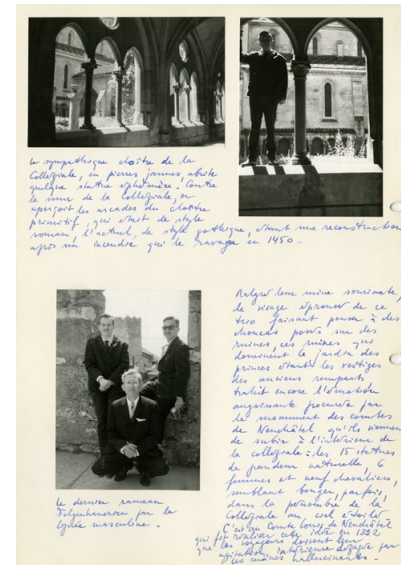 Le sympathique cloître de la
Collégiale, en pierres jaunes, abrite
quelque statue éphémère. Contre
le mur de la collégiale, on
aperçoit les arcades du cloître
primitif, qui était de style
roman, l'actuel, de style gothique, étant une reconstruction
après un incendie qui le ravagea en 1450.
Malgré leur mine souriante,
le visage éprouvé de ce
trio faisant penser à des
choucas posés sur des
ruines, ces ruines qui
dominent le jardin des
princes étant les vestiges
des anciens remparts
trahit encore l'émotion
angoissante procurée par
le monument des comtes
de Neuchâtel qu'ils viennent
de subir à l'intérieur de
la collégiale : les 15 statues
de grandeur naturelle, 6
femmes et neuf chevaliers,
semblant bouger, parfois,
dans la pénombre de la
Collégiale au ciel étoilé
C'est au Comte Louis de Neuchâtel
qui fit réaliser cette idée en 1372
que les voyageurs doivent leur
agitation intérieure dégagée par
les mânes hallucinants.
Le dernier rameau
par la
lignée masculine.